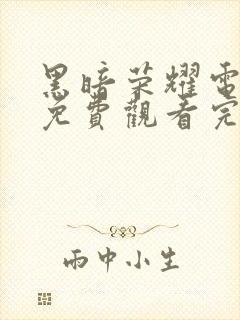 黑暗荣耀電
免費觀看完
雨中小生